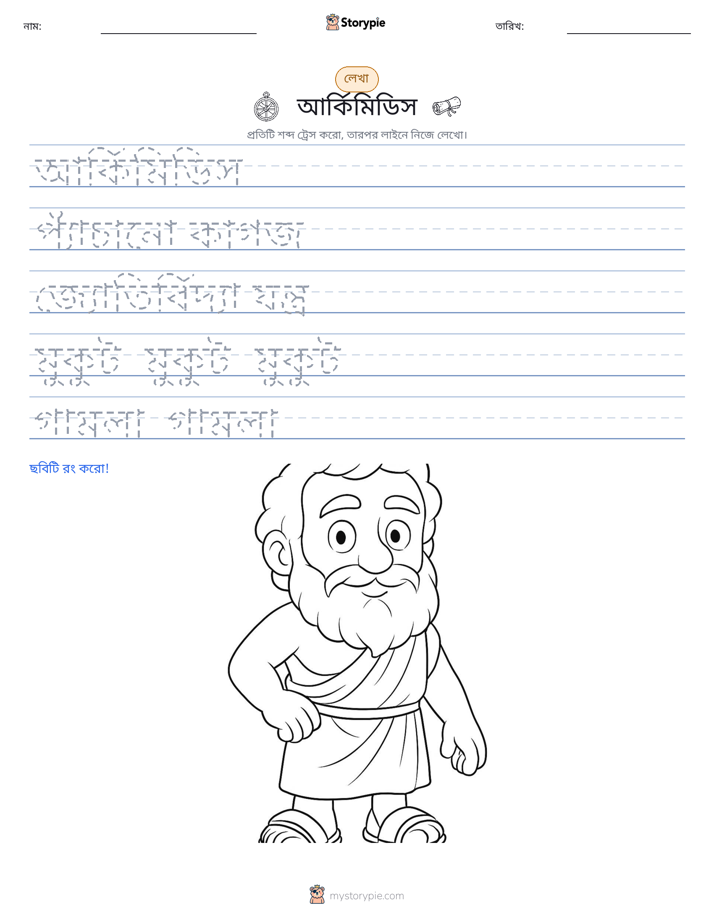 নাম:
Storypie
তারিখ:
লেখা
আর্কিমিডিস
প্রতিটি শব্দ ট্রেস করো, তারপর লাইনে নিজে লেখো।
আর্কিমিডিস
প্যাঁচানো কাগজ
জ্যোতির্বিদ্যা যন্ত্র
মুকুট মুকুট মুকুট
গামলা গামলা
ছবিটি রং করো!
mystorypie.com